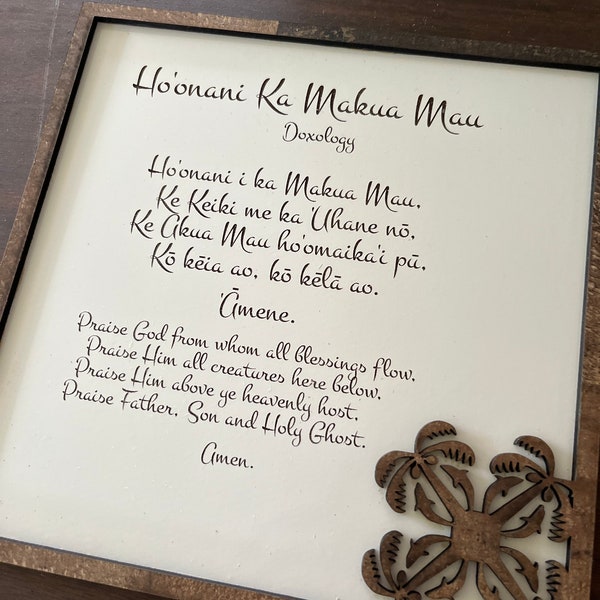 Ho'onani Ka Makua Mau
Doxology
Ho'onani i ka Makua Mau,
Ke Keiki me ka 'Uhane nō,
Ke Akua Mau ho'omaika'i pū,
Kō kēia ao, kō kēlā ao.
'Āmene.
Praise God from whom all blessings flow,
Praise Him all creatures here below,
Praise Him above ye heavenly host,
Praise Father, Son and Holy Ghost.
Amen.